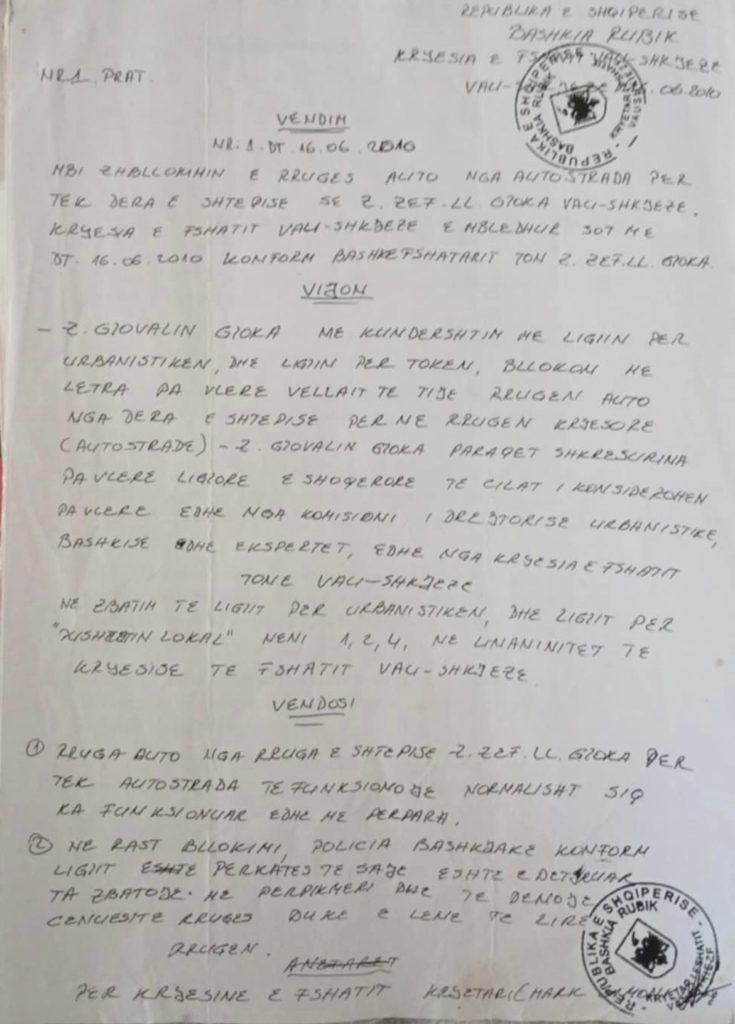 REPUBLIKA E SHQIPERISE
BASHKIA RUBIK
KRYESIA E FSHATIT VAU-SHKJEZE
NR 1. PRAT.
VAU- 06 2010
REPUBLIKA E SHQIPERISE
BASHKIA RUBIK
VENDIM
NR: 1. DT. 16.06. 2010
MBI ZHBLLOKIMIN E RRUGES AUTO NGA AUTOSTRADA PER
TEK DERA E SHTEPISE SE Z. ZEF. LL. GJOKA VAU-SHKJEZE.
KRYESIA E FSHATIT VAU-SHKJEZE E MBLEDHUR SOT ME
DT. 16.06.2010 KONFORM BASHKEFSHATARIT TON Z. ZEF. LL. GJOKA.
VIJON
- Z. GJOVALIN GJOKA ME KUNDERSHTIM ME LIGJIN PER
URBANISTIKEN, DHE LIGJIN PER TOKEN, BLLOKON ME
LETRA PA VLERE VELLAIT TE TIJE RRUGEN AUTO
NGA DERA E SHTEPISE PER NE RRUGEN KRYESORE
(AUTOSTRADE) - Z. GJOVALIN GJOKA PARAQET SHKRESURINA
PA VLERE LIGJORE E SHOQERORE TE CILAT I KONSIDEROHEN
PA VLERE EDHE NGA KOMISIONI I DREJTORISE URBANISTIKE,
BASHKISE EDHE EKSPERTET, EDHE NGA KRYESIA E FSHATIT
TONE VAU-SHKJEZE
NE ZBATIM TE LIGJIT PER URBANISTIKEN, DHE LIGJIT PER
LOKAL" NENI 1, 2, 4, NE UNANINITET TE
KRYESISE TE FSHATIT VAU-SHKJEZE
VENDOSI
1 RRUGA AUTO NGA RRUGA E SHTEPISE Z. ZEF. LL. GJOKA PER
TEK AUTOSTRADA TE FUNKSIONOJE NORMALISHT SIQ
KA FUNKSIONUAR EDHE ME PERPARA.
2 NE RAST BLLOKIMI, POLICIA BASHKJAKE KONFORM
LIGJIT ESHTE PERKATES TE SAJE ESHTE E DETYRUAR
TA ZBATOJE ME PERPIKMERI DHE TE DENOJE
CENUESITE RRUGES DUKE E LENE TE LIRE
RRUGEN.
ANETARET
PER KRYESINE E FSHATIT KRYETARI (MARK
REPUBLIKA E SHQIPERISE
BASHKIA RUBIK
KRYETARI I FSHATIT